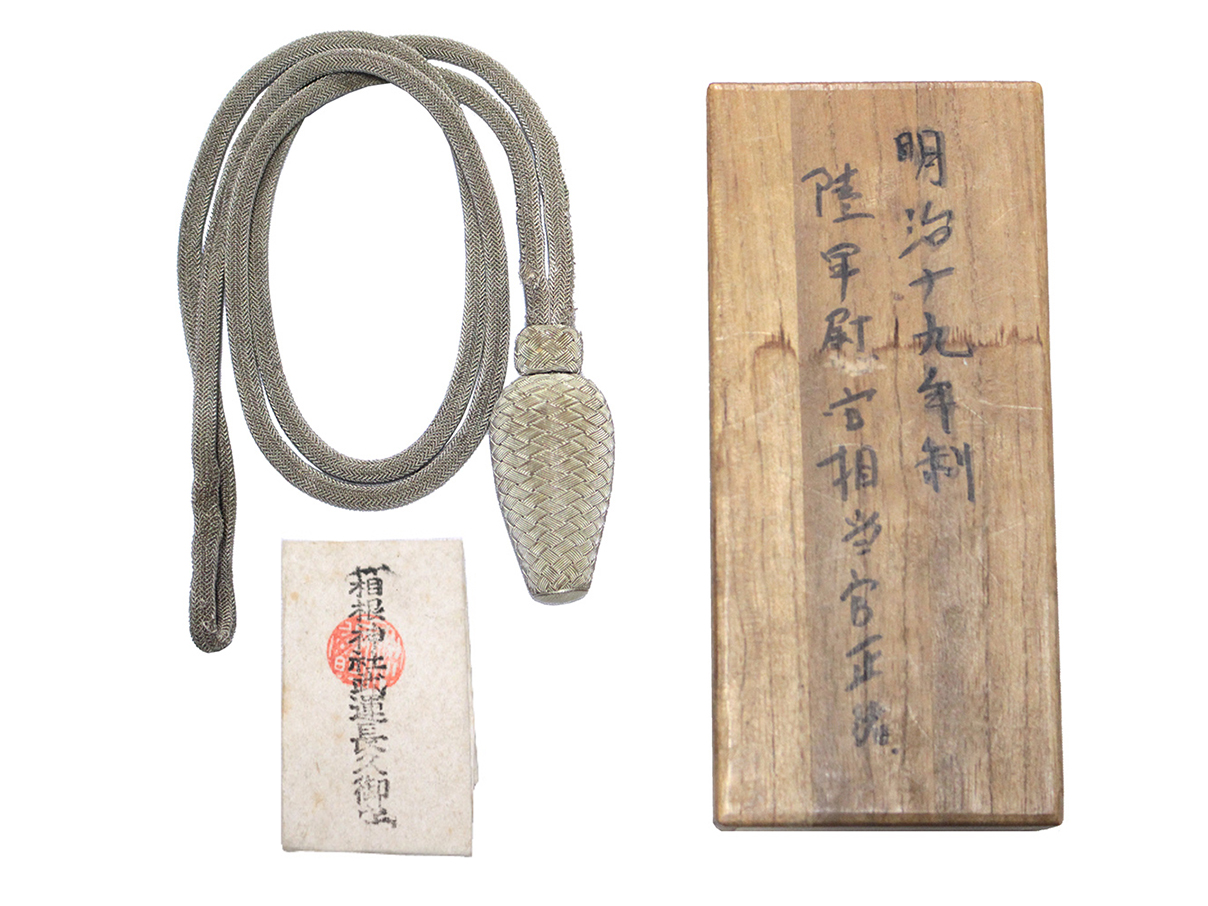 明治十九年制
陸軍尉官相当官正緒
箱根神社武運長久御守